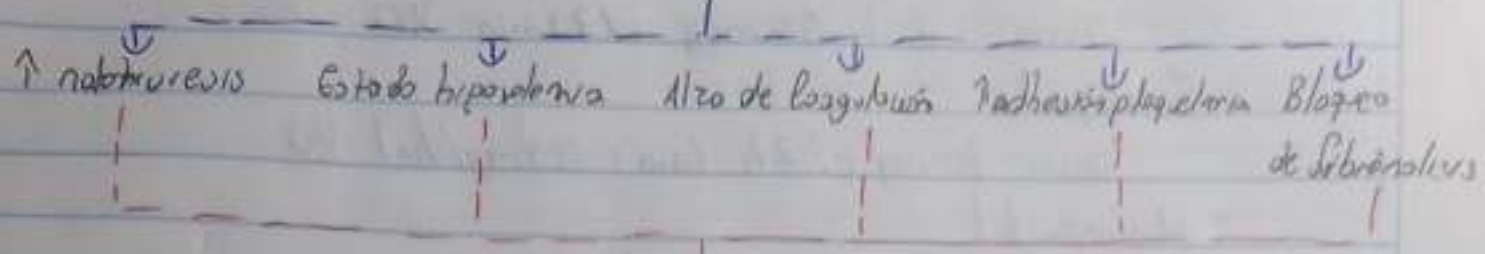 ↑ natriuresis Estado hipovolemia Alzo de Coagulación ↑adhesión plaquetaria Bloqeo
de fibrinolisis